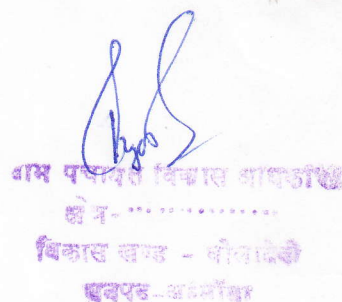 ग्राम पंचायत विकास अधिकारी
क्षेत्र-..................
विकास खण्ड -
जनपद-अल्मोड़ा